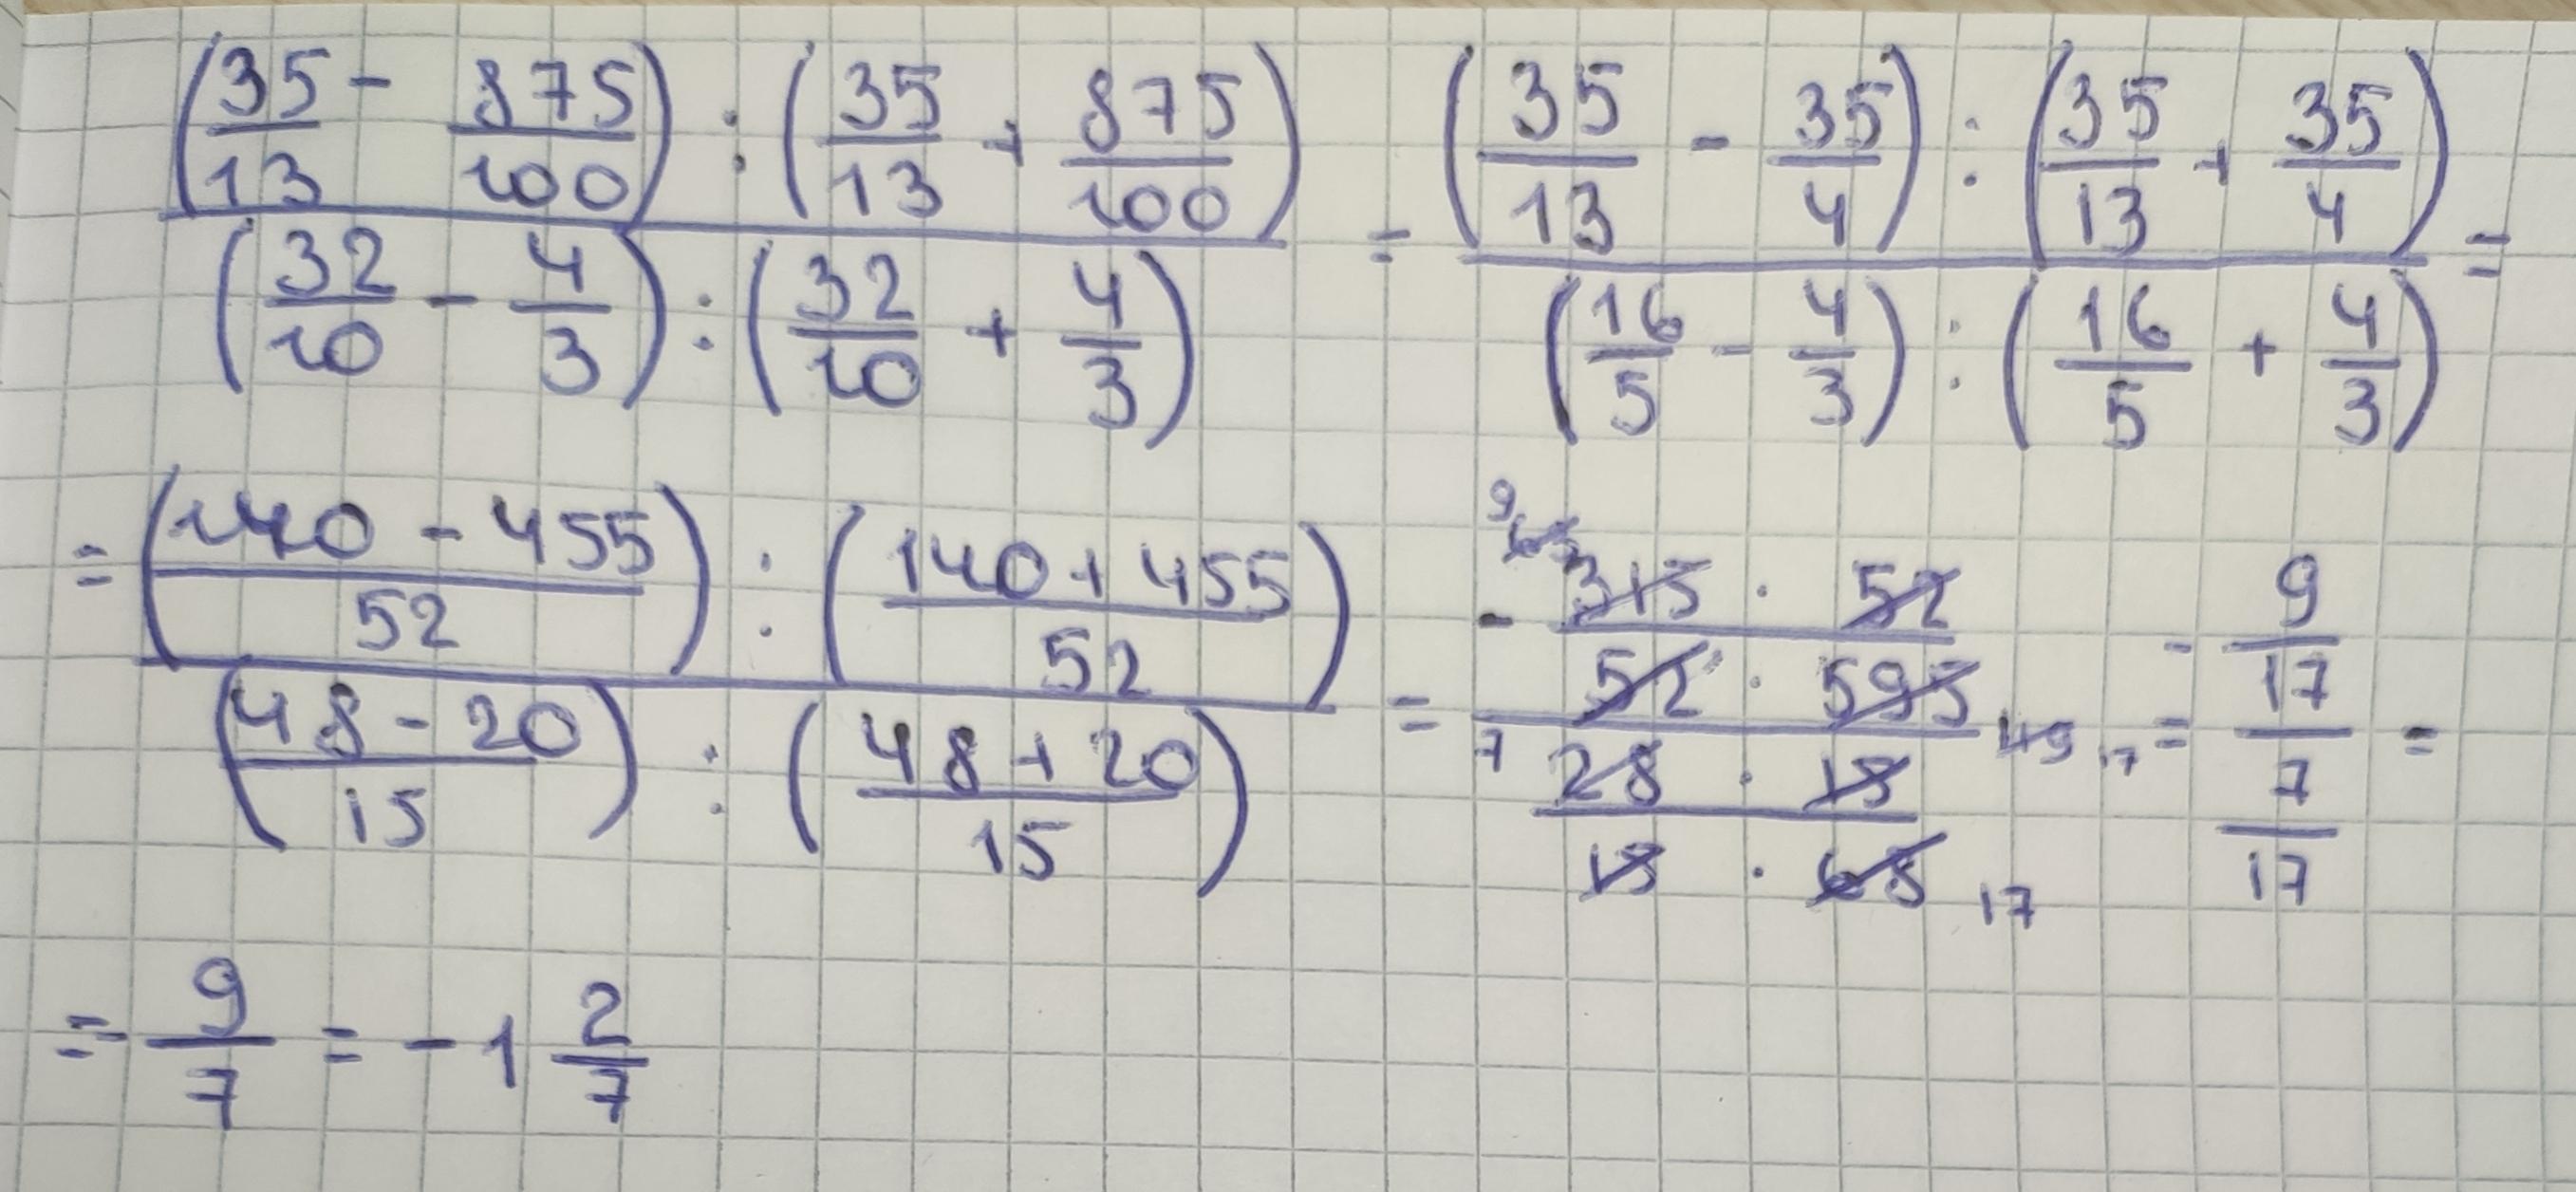 (35/13 - 875/100) : (35/13 + 875/100) / (32/10 - 4/3) : (32/10 + 4/3) = (35/13 - 35/4) : (35/13 + 35/4) / (16/5 - 4/3) : (16/5 + 4/3) =
= (140 - 455/52) : (140 + 455/52) / (48 - 20/15) : (48 + 20/15) = - 9 63 315 · 52 / 52 · 595 119 17 / 7 28 · 15 / 15 · 68 17 = - 9/17 / 7/17 =
= - 9/7 = - 1 2/7